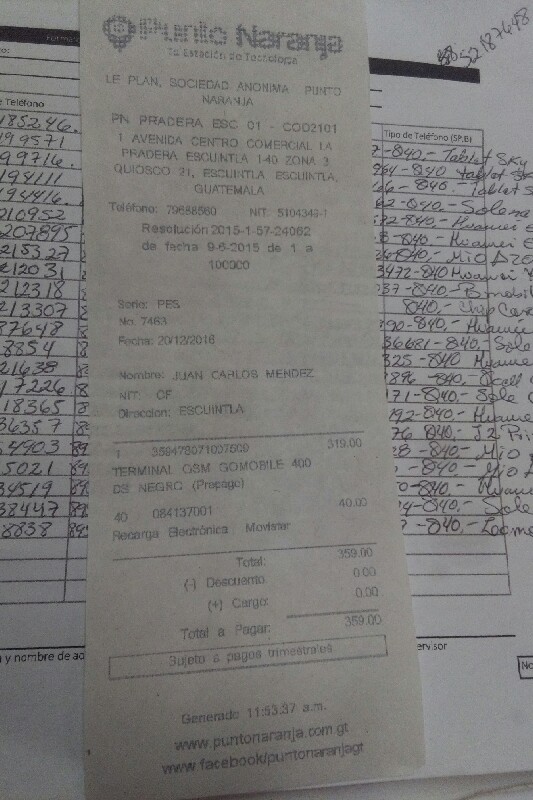 Punto Naranja
Tu Estación de Tecnología
LE PLAN, SOCIEDAD ANONIMA PUNTO
NARANJA
PN PRADERA ESC 01 - COO2101
1 AVENIDA CENTRO COMERCIAL LA
PRADERA ESCUINTLA 1-40 ZONA 3
QUIOSCO 21, ESCUINTLA ESCUINTLA,
GUATEMALA
Teléfono: 79688560 NIT: 5104348-1
Resolución 2015-1-57-24062
de fecha 9-6-2015 de 1 a
100000
Serie: PES
No. 7463
Fecha: 20/12/2016
Nombre: JUAN CARLOS MENDEZ
NIT: CF
Direccion: ESCUINTLA
1 359478071007500 319.00
TERMINAL GSM GOMOBILE 400
DS NEGRO (Prepago)
40 084137001 40.00
Recarga Electrónica Movistar
Total: 359.00
(-) Descuento 0.00
(+) Cargo: 0.00
Total a Pagar: 359.00
Sujeto a pagos trimestrales
Generado 11:53:37 a.m.
www.puntonaranja.com.gt
www.facebook/puntonaranjagt
e Teléfono
185246.
199571
199716.
194111
194416.
210952
207895
215327
212031
212318
213307
87648
8854
21638
17226
18365
36357
4903
5021
34519
38447
8838
y nombre de
52187648
Tipo de Teléfono (SP,B)
-840.- Tablet Sky
-840 Tablet
-840.- Tablet S
-840.- Solena
-840.- Huawei
-840.- Huawei
-840.- Mio
3472-840 Huawei
-840.- Bmobile
840.-
-840.- Huawei
36681-840.- Sole
325-840 Huawei
-840.-
171-840.- Sole
-840.- Huawei
76 840.- J2 Pri
-840.- Mio
-840.- Mio
-840.- Huawei
-840.- Sole
-840.-
ervisor